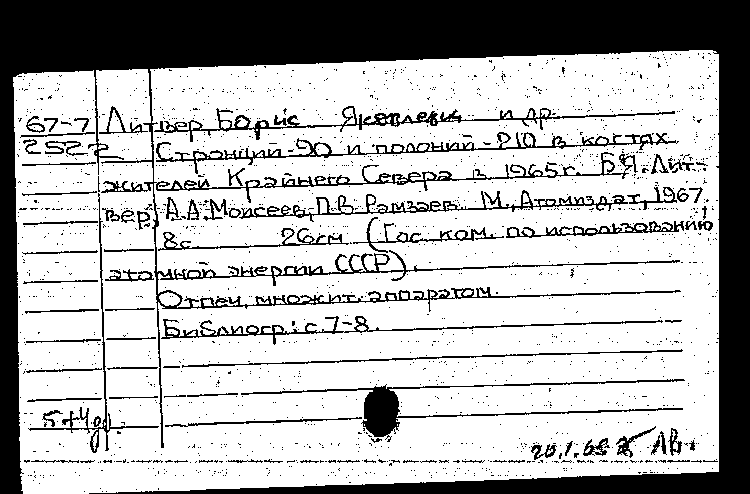 67-7 Литвер, Борис Яковлевич и др.
25272 Стронций-90 и полоний-210 в костях
жителей Крайнего Севера в 1965 г. Б.Я. Лит-
вер, А.А. Моисеев, П.В. Рамзаев М., Атомиздат, 1967.
8 с. 26 см (Гос. ком. по использованию
атомной энергии СССР).
Отпеч. множит. аппаратом.
Библиогр.: с. 7-8.